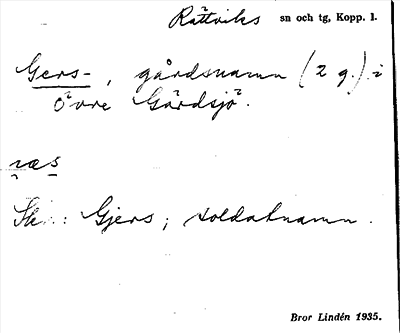 Rättviks sn och tg, Kopp. l.
Gers-, gårdsnamn (2 g.) i
Övre Gärdsjö.
Gjers; soldatnamn.
Bror Lindén 1935.